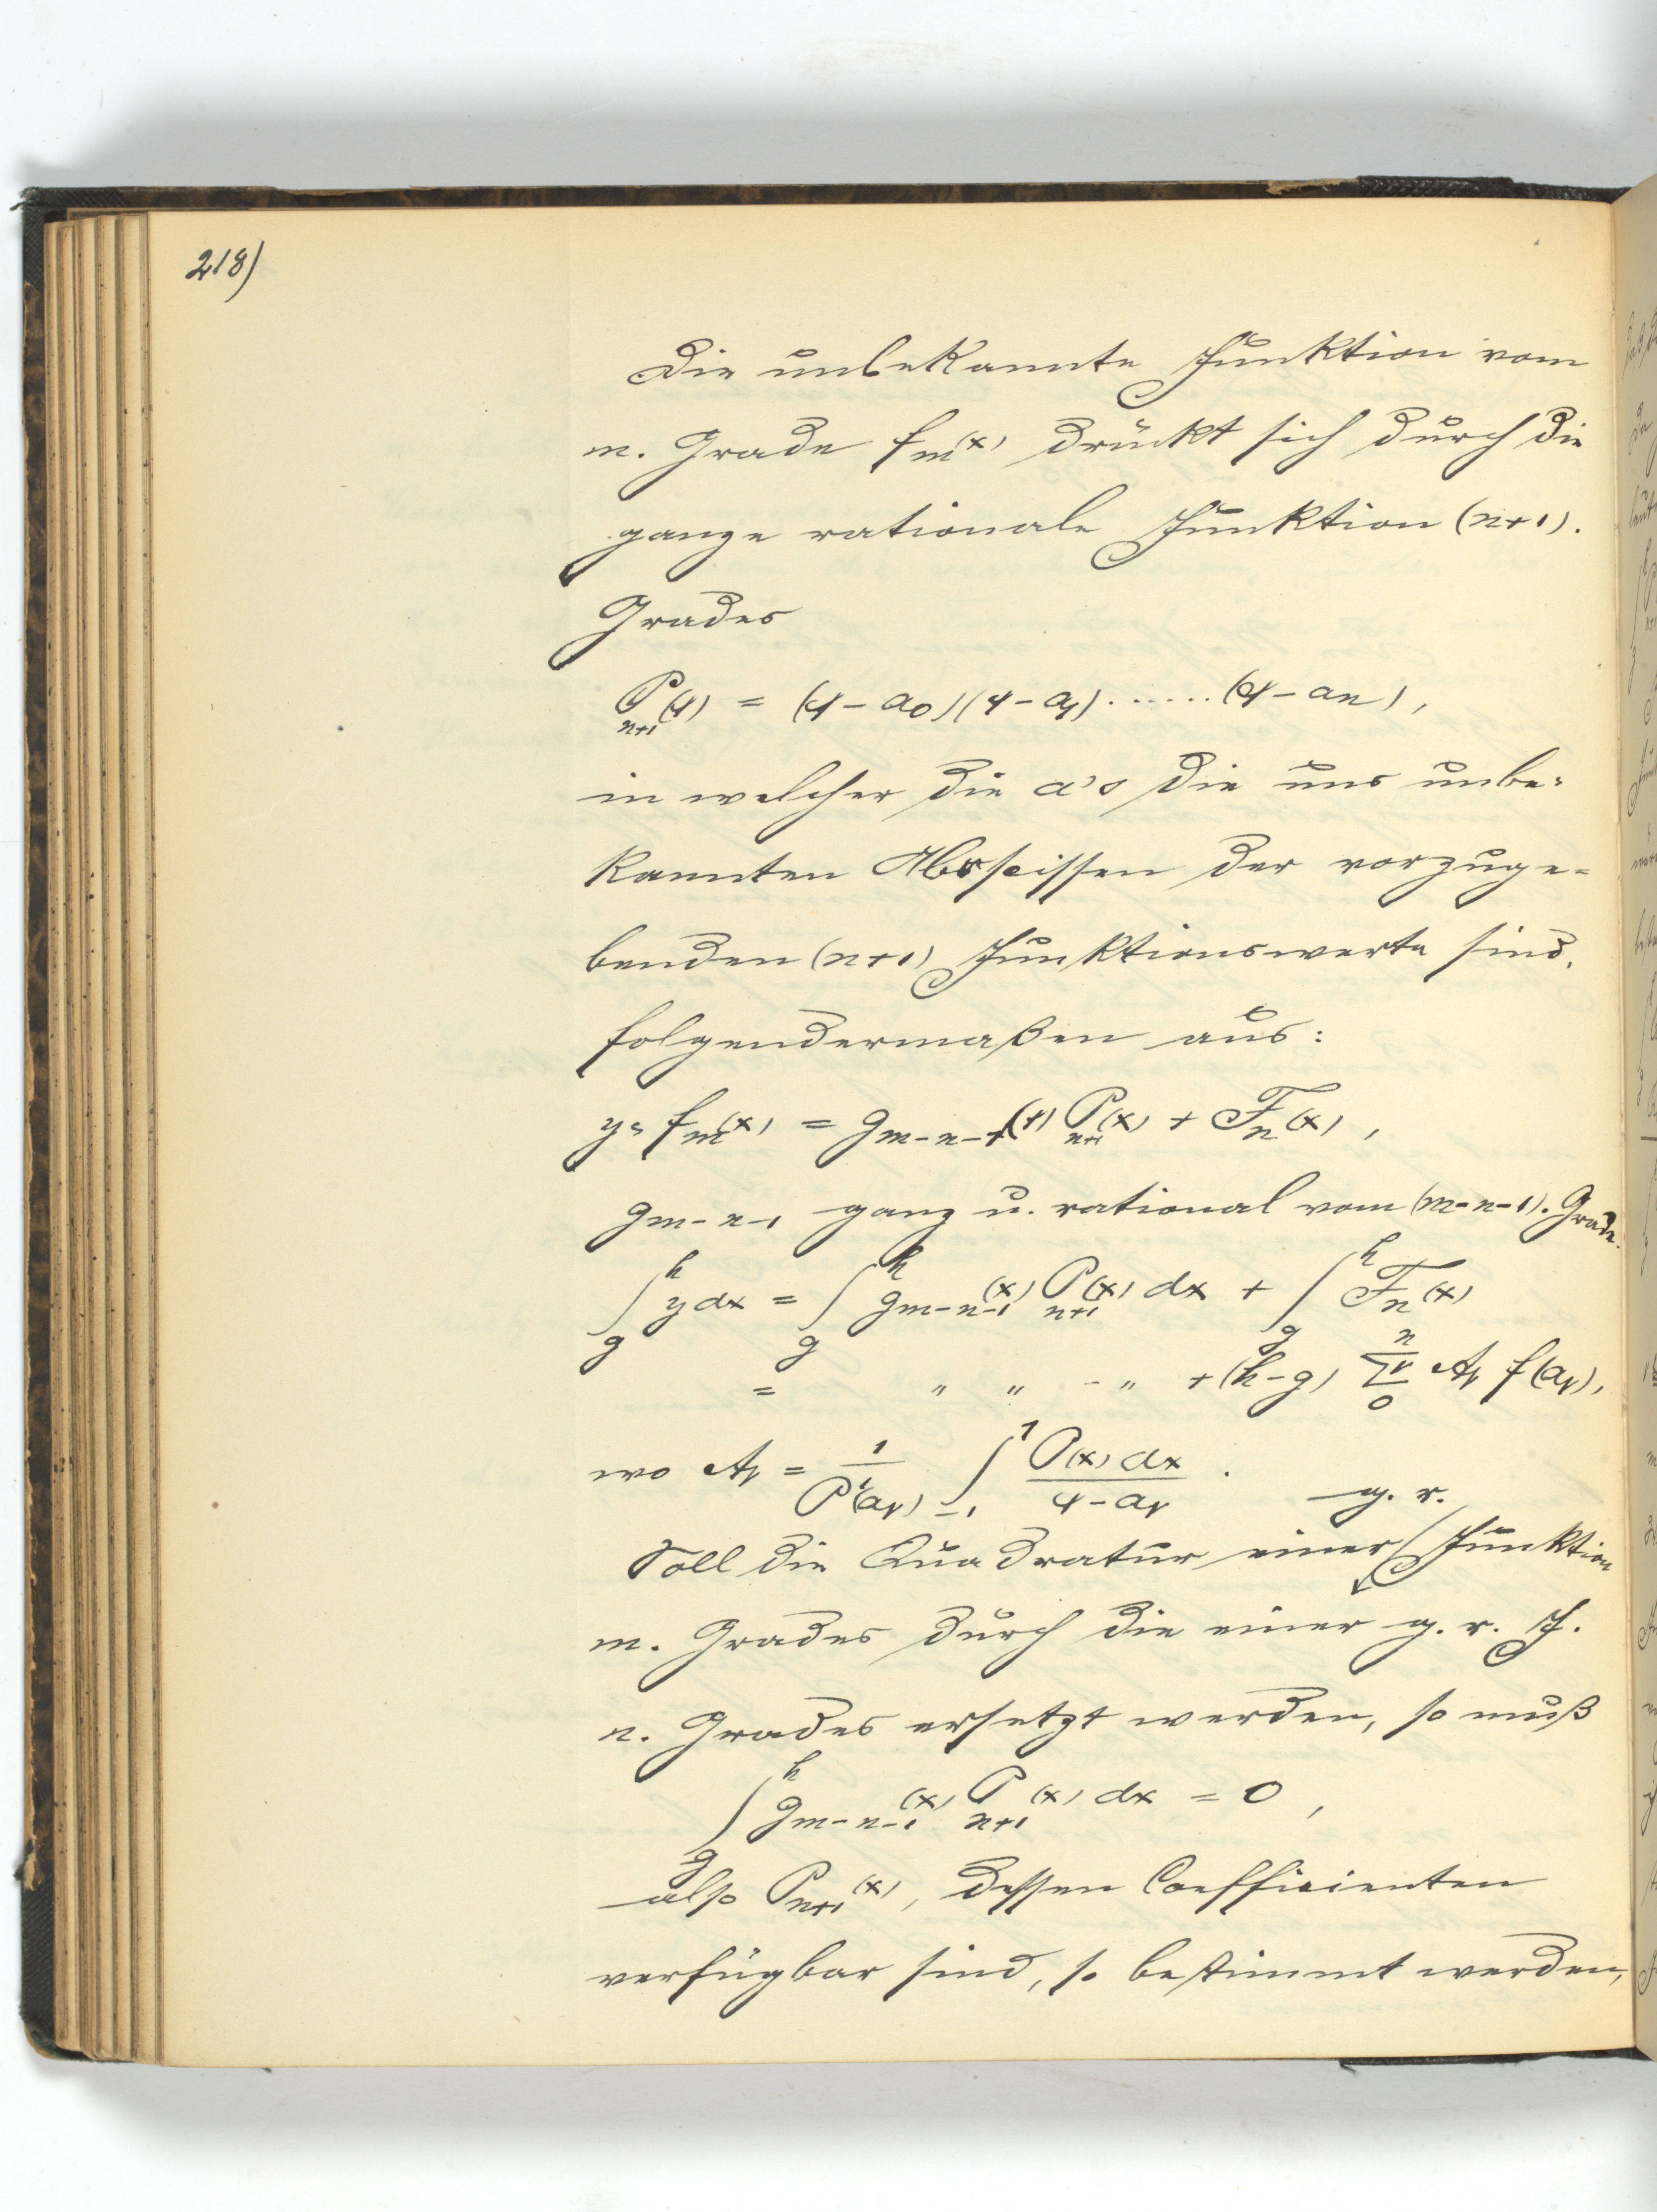 218)
Die unbekannte Funktion vom
m. Grade fm(x) drückt sich durch die
ganze rationale Funktion (n+1).
Grades
P(x) = (x - a0)(x - a1) ...... (x - an),
n+1
in welcher die a's die uns unbe-
kannten Abscissen der vorzuge-
benden (n+1) Funktionswerte sind,
folgendermaßen aus:
y = fm(x) = gm-n-1(x) Pn+1(x) + Fn(x),
gm-n-1 ganz u. rational vom (m-n-1). Grade.
∫_g^h y dx = ∫_g^h gm-n-1(x) Pn+1(x) dx + ∫_g^h Fn(x)
= " " - " + (h-g) Σν_0^n Aν f(aν),
wo Aν = 1/P'(aν) ∫_-1^1 P(x) dx / x - aν .
g. r.
Soll die Quadratur einer Funktion
m. Grades durch die einer g. r. F.
n. Grades ersetzt werden, so muß
∫_g^h gm-n-1(x) Pn+1(x) dx = 0,
also Pn+1(x), dessen Coefficienten
verfügbar sind, so bestimmt werden,